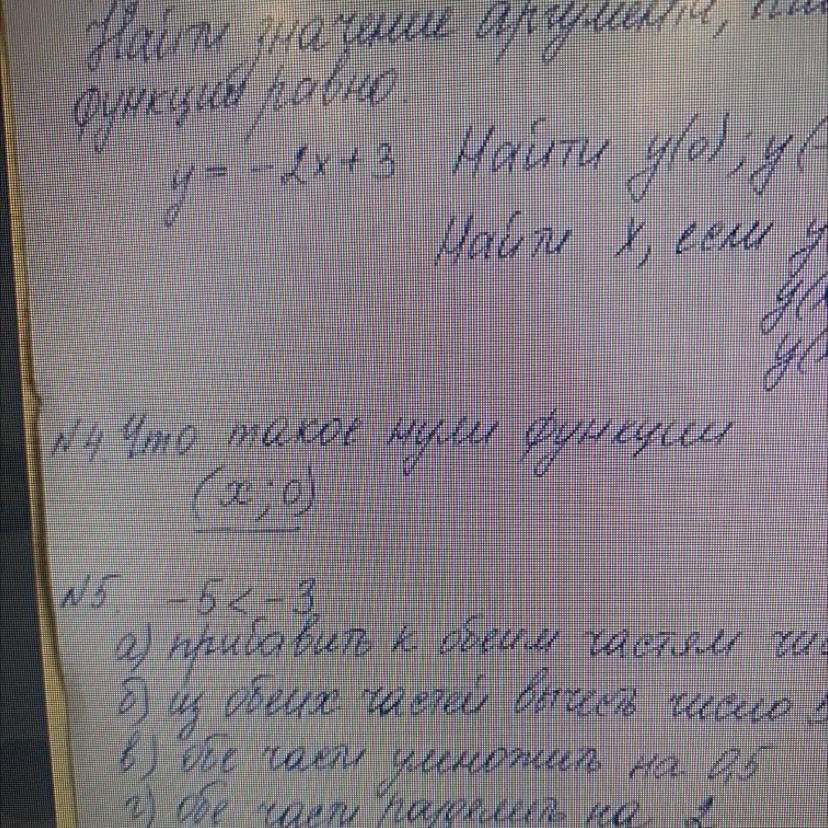 Найти значение аргумента,
функции равно.
y = -2x+3 Найти y(0); y(-
Найти x, если y
y(
y(
N4 Что такое нули функции
(x; 0)
N5. -5 < -3
а) прибавить к обеим частям чис
б) из обеих частей вычесть число 5
в) обе части умножить на 0,5
г) обе части разделить на 2